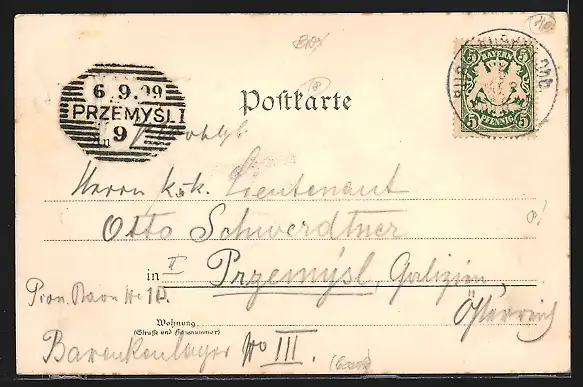 6.9.99
PRZEMYŚL 1
9
BAYERN
5 5
PFENNIG
5 5
Postkarte
Herrn k.k. Lieutenant
Otto Schwerdtner
in Przemysl, Galizien,
Österreich
Pion. Baon No
Wohnung
(Straße und Hausnummer)
Barenkenlager No III.